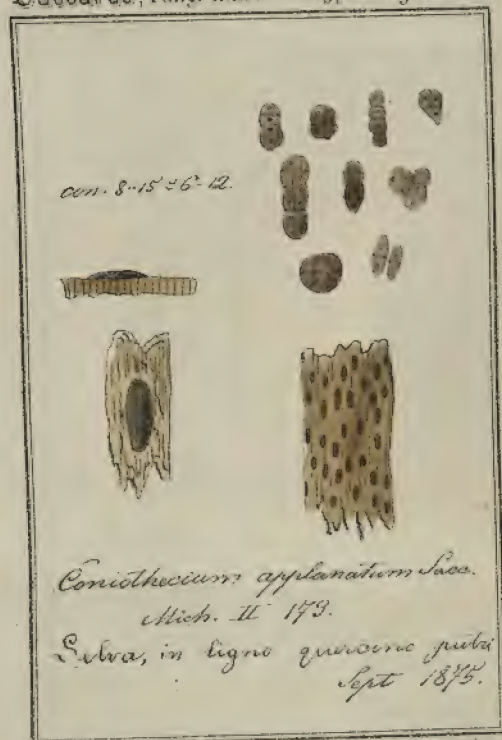 Saccardo,
con. 8-15 = 6-12.
Coniothecium applanatum Sacc.
Mich. II 179.
Selva, in ligno quercino putri
Sept 1875.